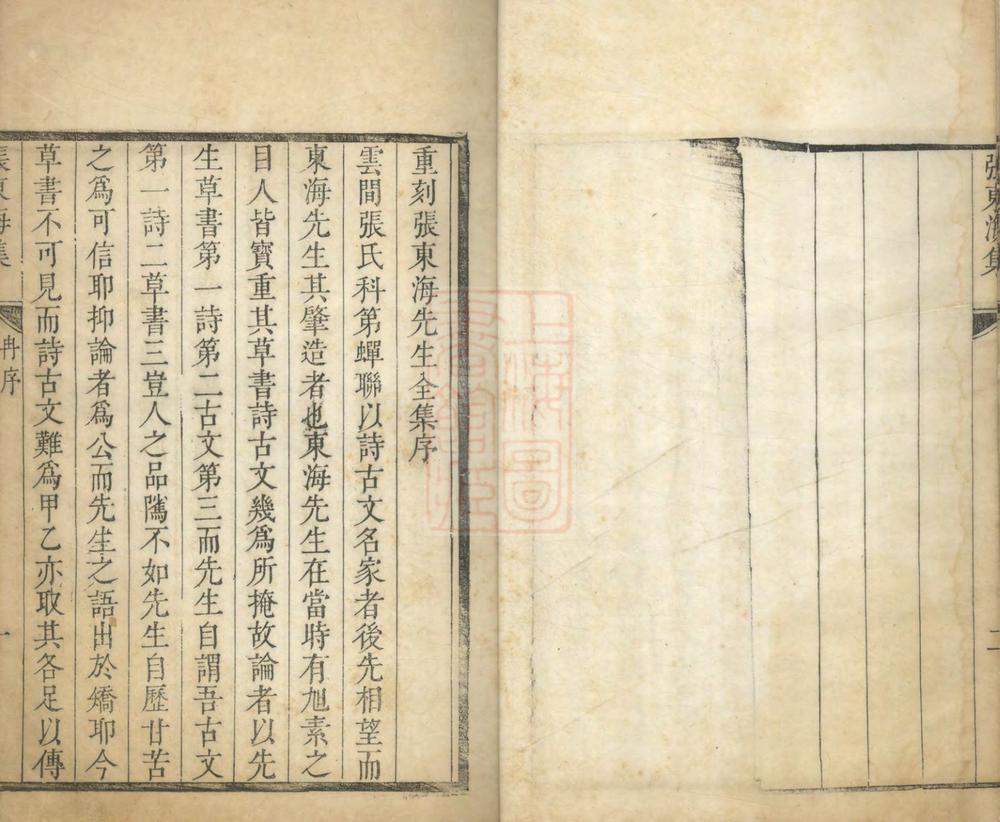 張東海集
二
重刻張東海先生全集序
雲間張氏科第蟬聯以詩古文名家者後先相望而
東海先生其肇造者也東海先生在當時有旭素之
目人皆寶重其草書詩古文幾爲所掩故論者以先
生草書第一詩第二古文第三而先生自謂吾古文
第一詩二草書三豈人之品隲不如先生自歷甘苦
之爲可信耶抑論者爲公而先生之語出於矯耶今
草書不可見而詩古文難爲甲乙亦取其各足以傳
張東海集
冉序
一